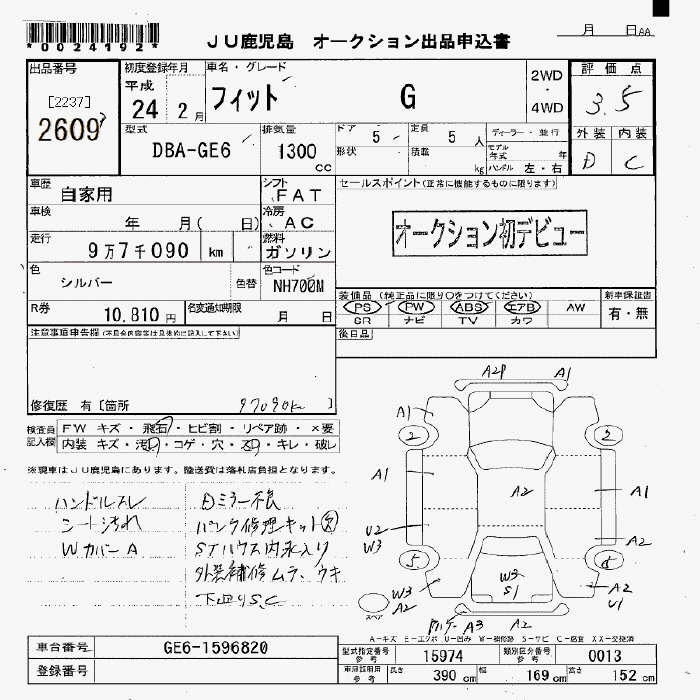 *0024192*
JU鹿児島 オークション出品申込書
月 日 AA
出品番号
[2237]
2609
初度登録年月
平成
24 2月
車名・グレード
フィット G
2WD
・
4WD
評価点
3.5
外装 内装
D C
型式
DBA-GE6
排気量
1300
cc
ドア 5
形状
定員 5 人
積載 kg
ディーラー・並行
モデル年式 年
ハンドル 左・右
車歴
自家用
シフト
FAT
車検
年 月( 日)
冷房
AC
走行
9万7千090 km
燃料
ガソリン
色
シルバー
色替
色コード
NH700M
R券
10,810円
名変通知期限
月 日
セールスポイント(正常に機能するものに限ります)
オークション初デビュー
装備品(純正品に限り○をつけてください)
PS PW ABS エアB AW
SR ナビ TV カワ
新車保証書
有・無
後日品
注意事項申告欄(不具合内容等は具体的に記入して下さい)
修復歴 有〔箇所 97090k 〕
検査員記入欄
FW キズ・飛石・ヒビ割・リペア跡・×要
内装 キズ・汚れ・コゲ・穴・スレ・キレ・破レ
※現車はJU鹿児島にあります。陸送費は落札店負担となります。
ハンドルスレ
シート汚れ
Wカバー A
Dミラー不良
パンク修理キット欠
STハウス内水入り
外装補修ムラ、ウキ
下廻りS.C
A2P A1
A1
2 2
A1 A2 A1
U2
W3 A2
5 5
W3 W3 A2
A2 S1 U1
スペア
A3 A2
A-キズ E-エクボ U-凹み W-補修跡 S-サビ C-腐食 XX-交換済
車台番号
GE6-1596820
登録番号
型式指定番号
参考
15974
類別区分番号
参考
0013
車庫証明用
参考
長さ 390 cm
幅 169 cm
高さ 152 cm